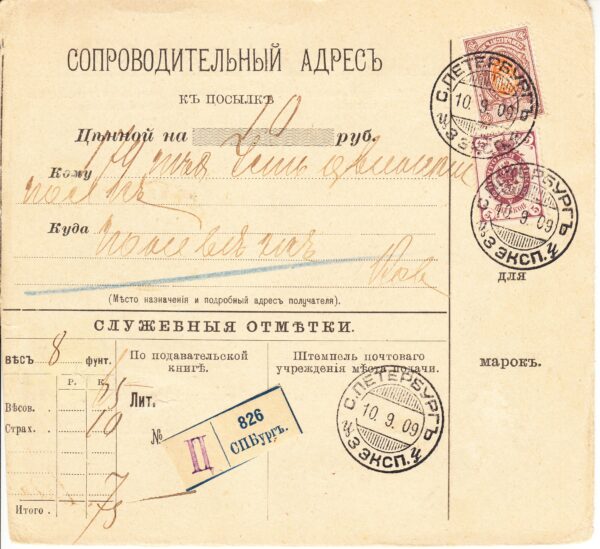 СОПРОВОДИТЕЛЬНЫЙ АДРЕСЪ
КЪ ПОСЫЛКѢ
Цѣнной на 10 руб.
Кому 179
полкъ
Куда
(Мѣсто назначенія и подробный адресъ получателя).
С.ПЕТЕРБУРГЪ
10.9.09
3 ЭКСП.
С.ПЕТЕРБУРГЪ
10.9.09
3 ЭКСП.
ДЛЯ
МАРОКЪ.
СЛУЖЕБНЫЯ ОТМѢТКИ.
ВѢСЪ 8 фунт.
Р. К.
Вѣсов. 65
Страх. 10
Итого . 75
По подавательской
книгѣ.
Лит.
№
П
826
СПБургъ.
Штемпель почтоваго
учрежденія мѣста подачи.
С.ПЕТЕРБУРГЪ
10.9.09
3 ЭКСП.